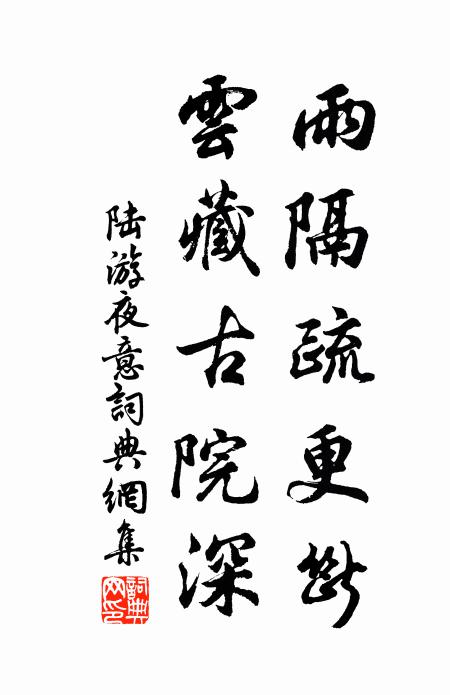 雨隔疏更斷
雲藏古院深
陆游夜意詞典網集
詞典网印